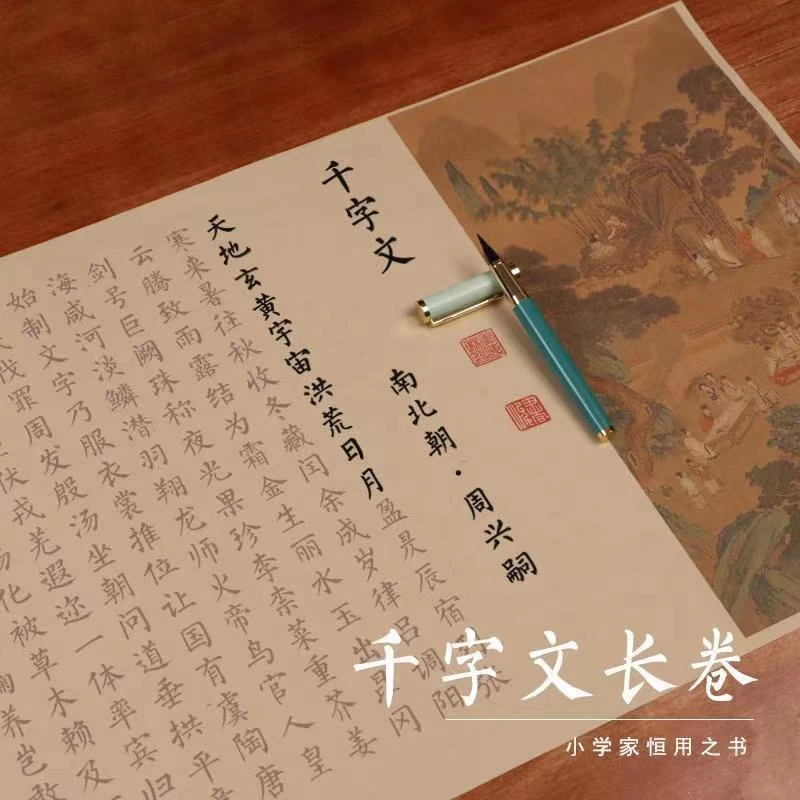 千字文
南北朝·周兴嗣
天地玄黄宇宙洪荒日月盈昃辰宿张
寒来暑往秋收冬藏闰余成岁律吕调阳
云腾致雨露结为霜金生丽水玉出昆冈
剑号巨阙珠称夜光果珍李柰菜重芥姜
海咸河淡鳞潜羽翔龙师火帝鸟官人皇
始制文字乃服衣裳推位让国有虞陶唐
伐罪周发殷汤坐朝问道垂拱平章
伏戎羌遐迩一体率宾归
场化被草木赖及
鞠养岂敢
千字文长卷
小学家恒用之书